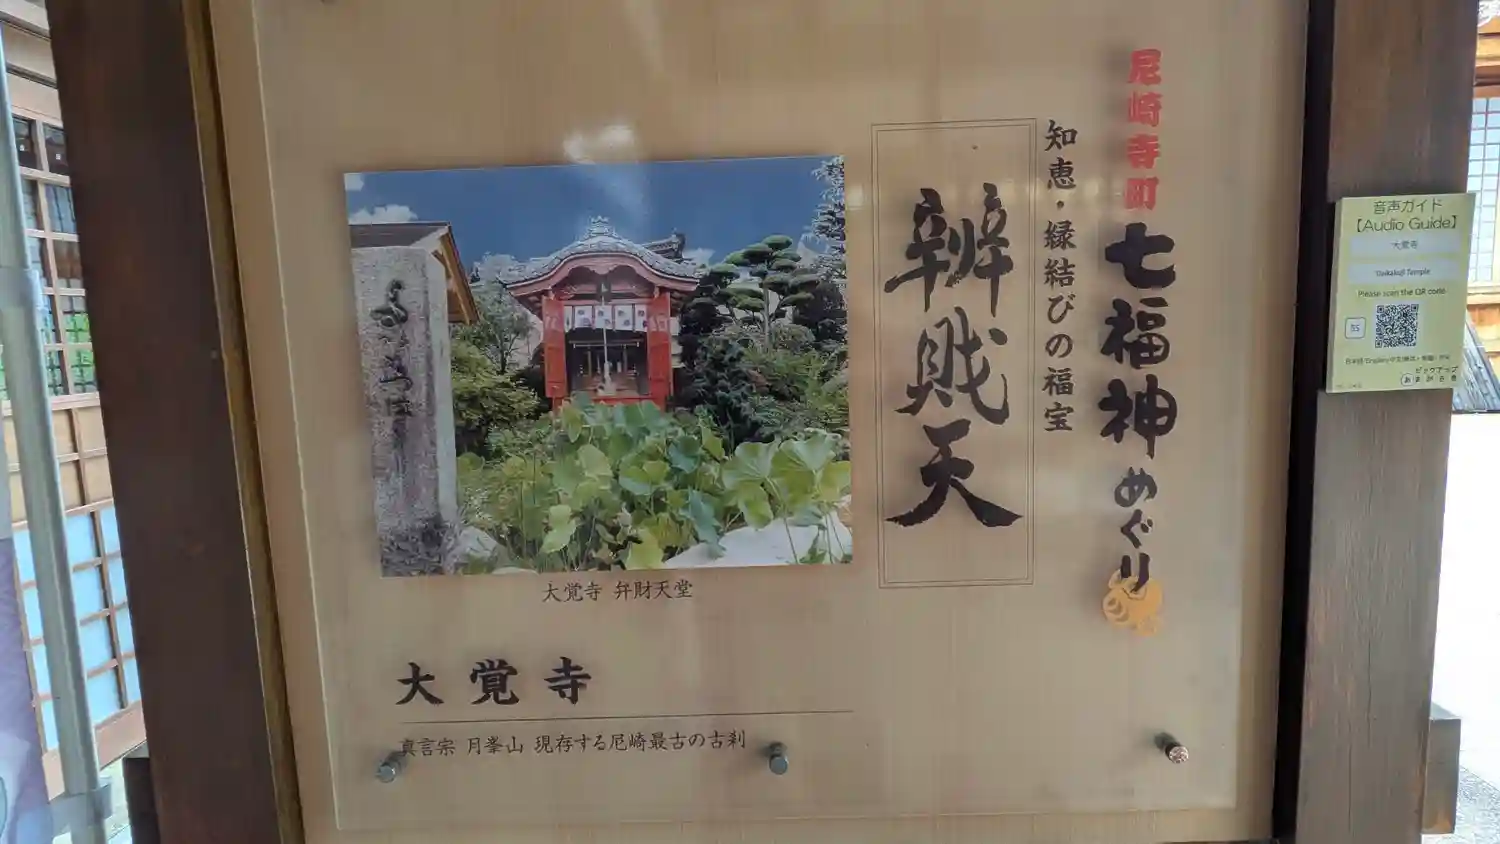 尼崎寺町 七福神めぐり
知恵・縁結びの福宝
辨戝天
大覚寺 弁財天堂
大覚寺
真言宗 月峯山 現存する尼崎最古の古刹
音声ガイド
【Audio Guide】
大覚寺
Daikakuji Temple
Please scan the QR code.
ピックアップ
あまがさき